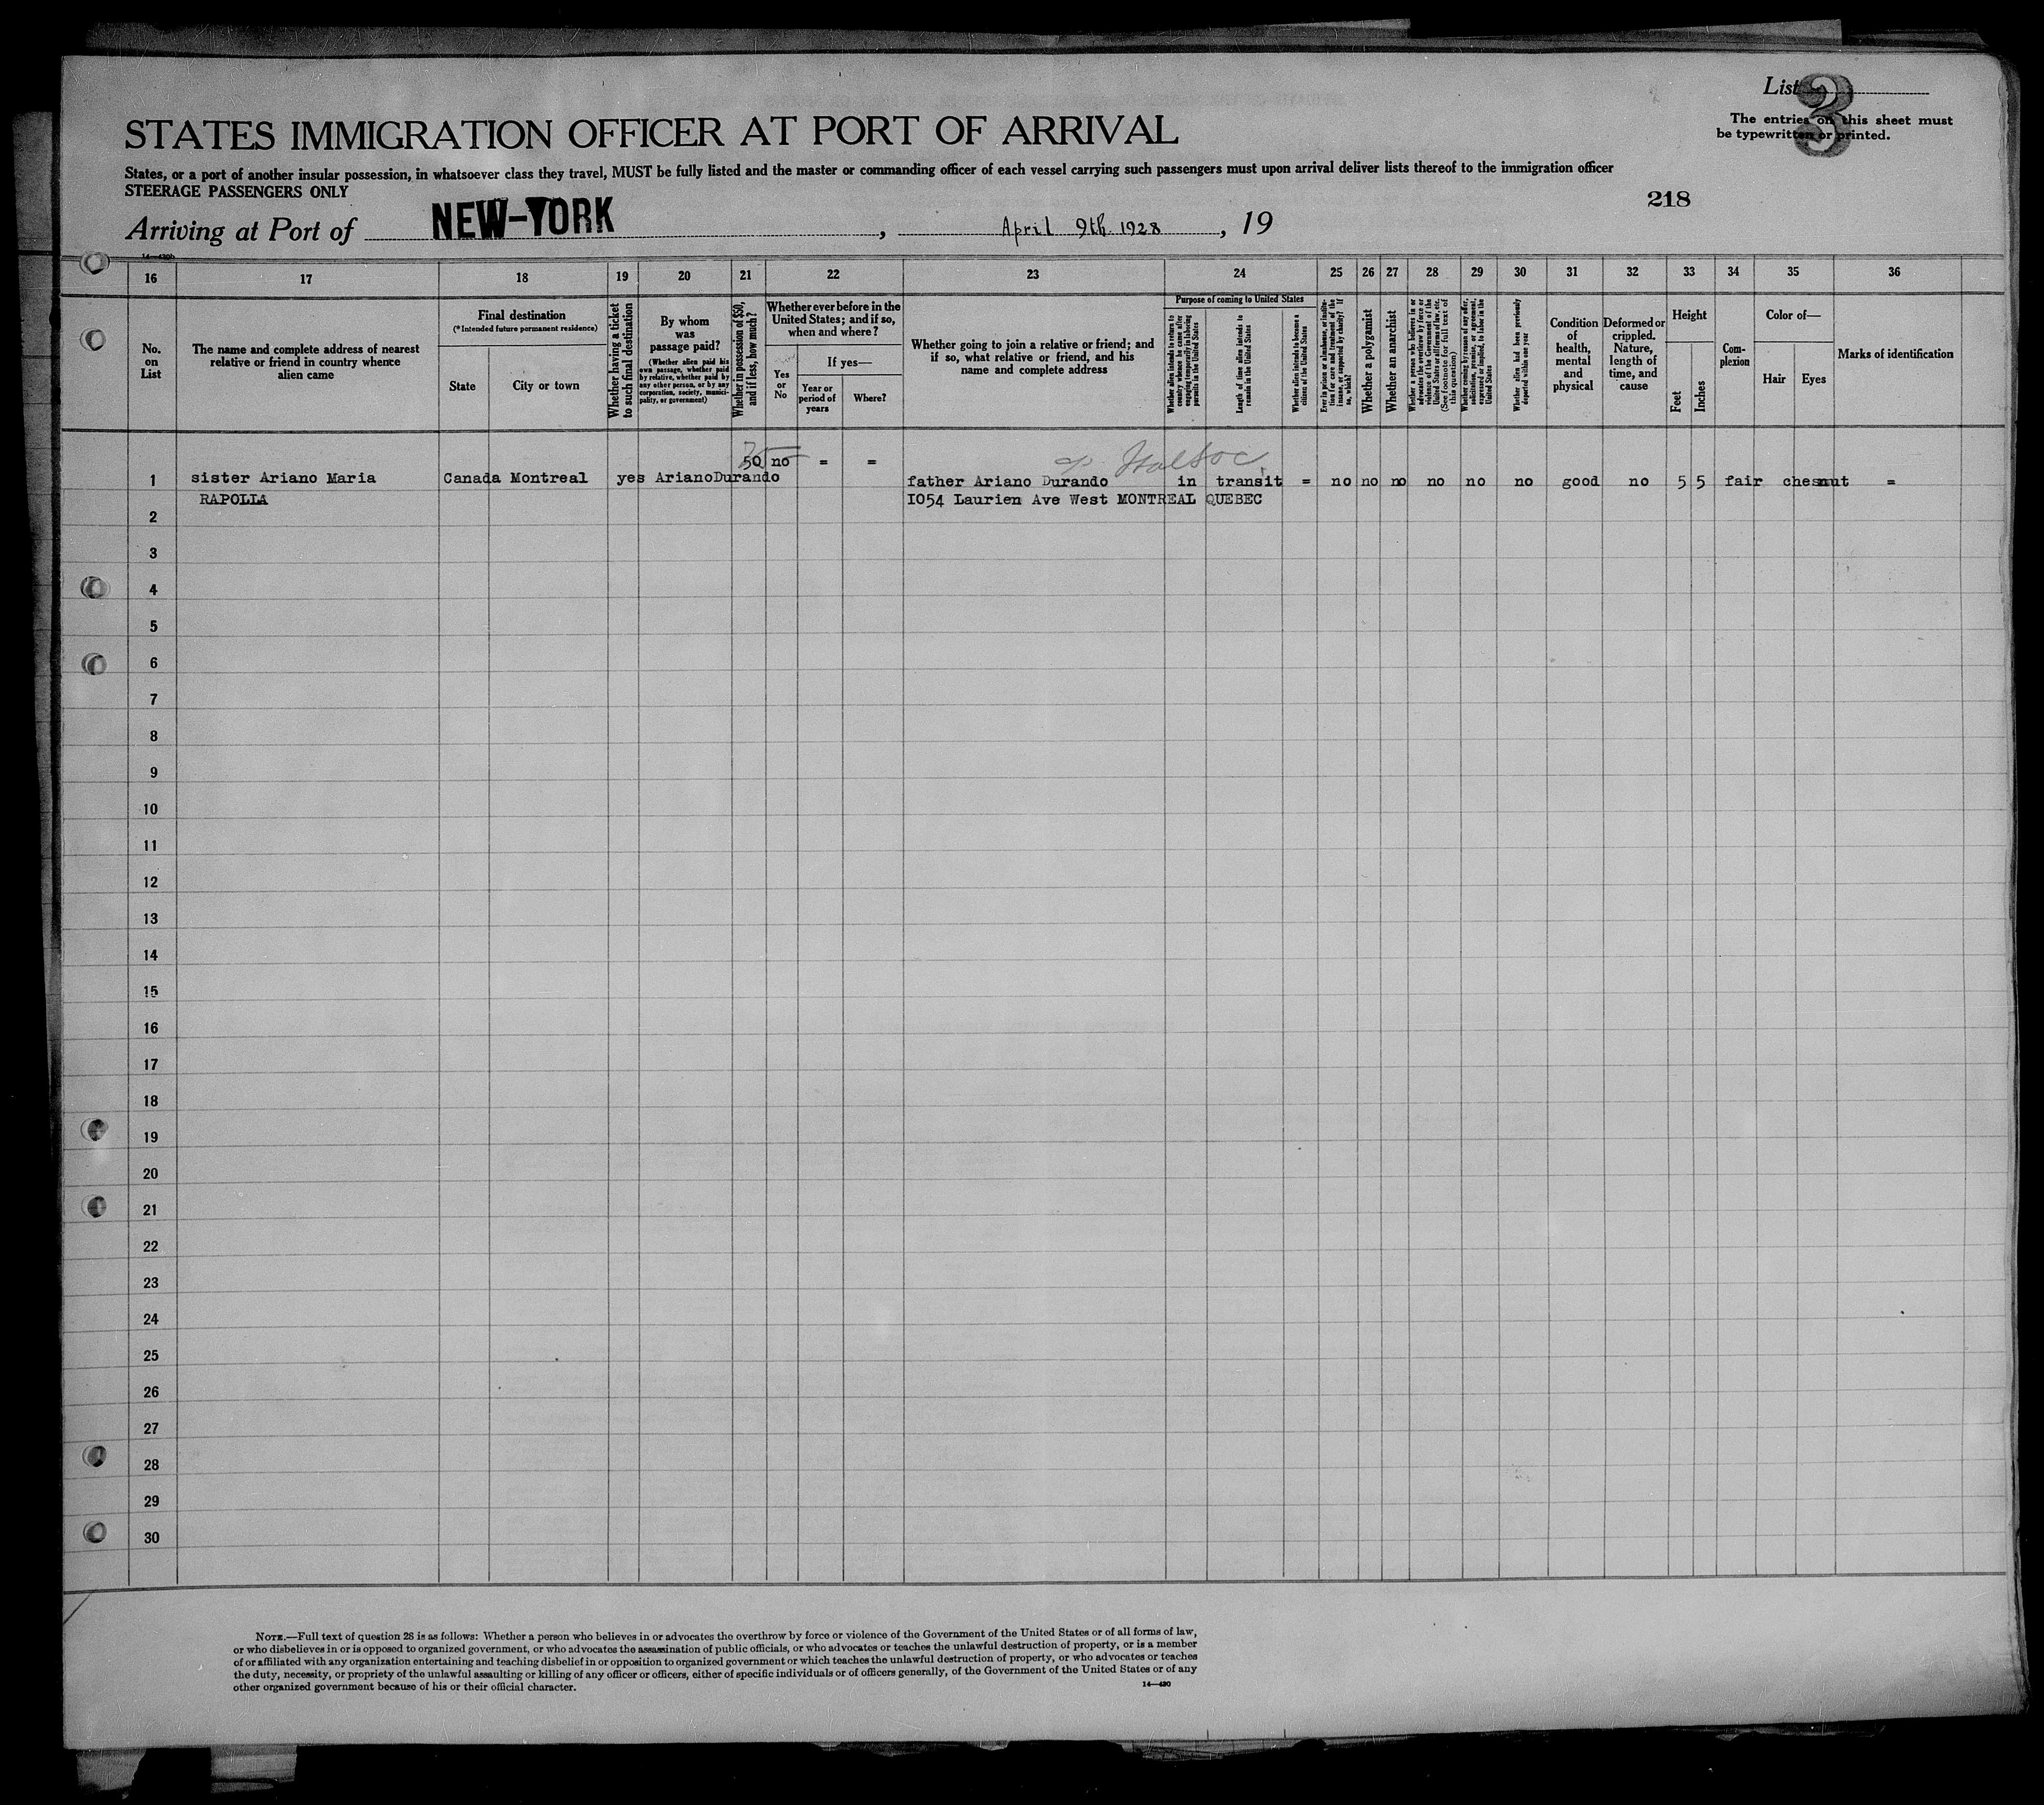 List 3
STATES IMMIGRATION OFFICER AT PORT OF ARRIVAL
The entries on this sheet must
be typewritten or printed.
States, or a port of another insular possession, in whatsoever class they travel, MUST be fully listed and the master or commanding officer of each vessel carrying such passengers must upon arrival deliver lists thereof to the immigration officer
STEERAGE PASSENGERS ONLY
218
Arriving at Port of NEW-YORK, April 9th 1928, 19
14—420b
16 17 18 19 20 21 22 23 24 25 26 27 28 29 30 31 32 33 34 35 36
No.
on
List
The name and complete address of nearest
relative or friend in country whence
alien came
Final destination
(*Intended future permanent residence)
State
City or town
Whether having a ticket
to such final destination
By whom
was
passage paid?
(Whether alien paid his
own passage, whether paid
by relative, whether paid by
any other person, or by any
corporation, society, munici-
pality, or government)
Whether in possession of $50,
and if less, how much?
Whether ever before in the
United States; and if so,
when and where?
Yes
or
No
If yes—
Year or
period of
years
Where?
Whether going to join a relative or friend; and
if so, what relative or friend, and his
name and complete address
Purpose of coming to United States
Whether alien intends to return to
country whence he came after
engaging temporarily in laboring
pursuits in the United States
Length of time alien intends to
remain in the United States
Whether alien intends to become a
citizen of the United States
Ever in prison or almshouse, or institu-
tion for care and treatment of the
insane, or supported by charity? If
so, which?
Whether a polygamist
Whether an anarchist
Whether a person who believes in or
advocates the overthrow by force or
violence of the Government of the
United States or all forms of law, etc.
(See footnote for full text of
this question)
Whether coming by reason of any offer,
solicitation, promise, or agreement,
expressed or implied, to labor in the
United States
Whether alien had been previously
deported within one year
Condition
of
health,
mental
and
physical
Deformed or
crippled.
Nature,
length of
time, and
cause
Height
Feet
Inches
Com-
plexion
Color of—
Hair
Eyes
Marks of identification
50 no = =
1 sister Ariano Maria Canada Montreal yes ArianoDurando father Ariano Durando in transit = no no no no no no good no 5 5 fair chesnut =
RAPOLLA 1054 Laurien Ave West MONTREAL QUEBEC
2
3
4
5
6
7
8
9
10
11
12
13
14
15
16
17
18
19
20
21
22
23
24
25
26
27
28
29
30
NOTE.—Full text of question 28 is as follows: Whether a person who believes in or advocates the overthrow by force or violence of the Government of the United States or of all forms of law,
or who disbelieves in or is opposed to organized government, or who advocates the assassination of public officials, or who advocates or teaches the unlawful destruction of property, or is a member
of or affiliated with any organization entertaining and teaching disbelief in or opposition to organized government or which teaches the unlawful destruction of property, or who advocates or teaches
the duty, necessity, or propriety of the unlawful assaulting or killing of any officer or officers, either of specific individuals or of officers generally, of the Government of the United States or of any
other organized government because of his or their official character.
14—420